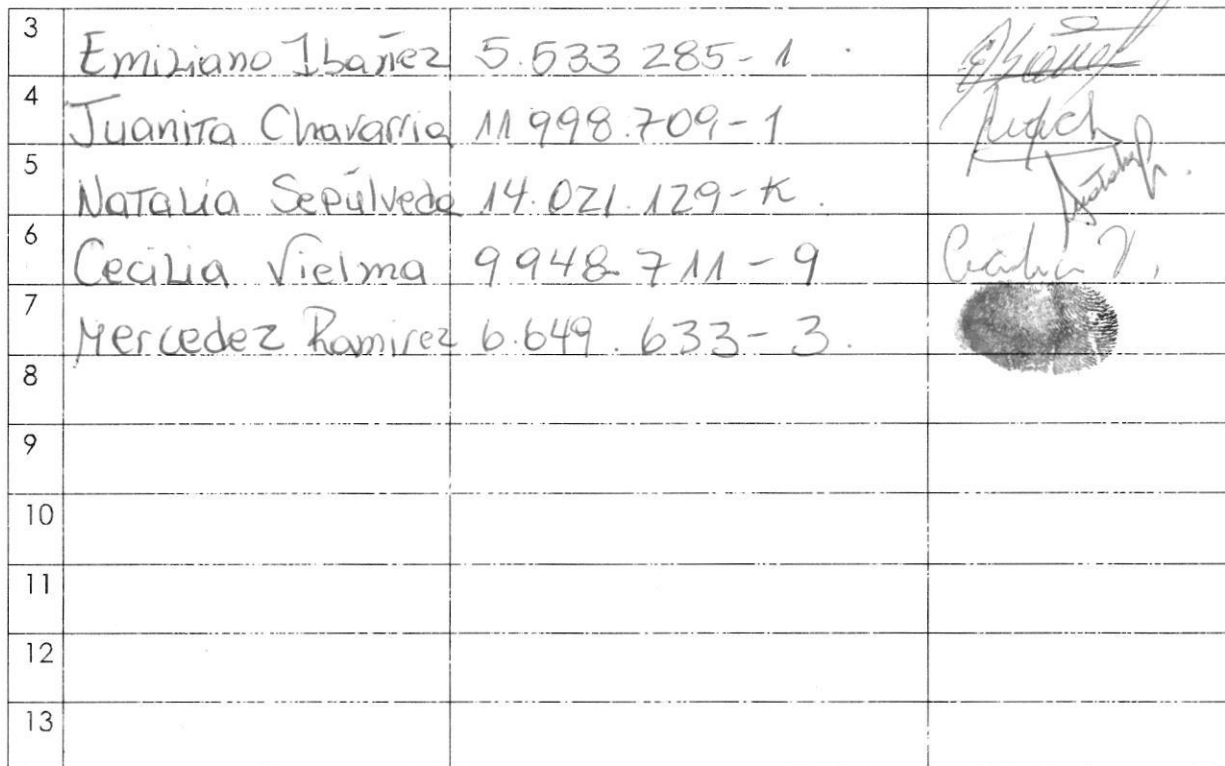 3 Emiliano Ibañez 5.533 285-1
4 Juanita Chavarria 11 998.709-1
5 Natalia Sepúlveda 14.021.129-K.
6 Cecilia Vielma 9948.711-9 Cecilia V.
7 Mercedez Ramirez 6.649.633-3.
8
9
10
11
12
13